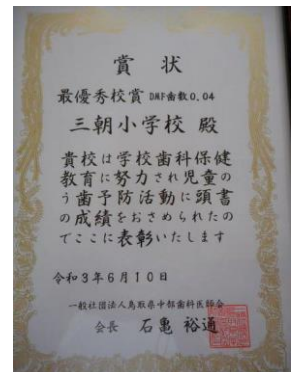 賞状
最優秀校賞 DMF歯数0.04
三朝小学校 殿
貴校は学校歯科保健
教育に努力され児童の
う歯予防活動に頭書
の成績をおさめられたの
でここに表彰いたします
令和3年6月10日
一般社団法人鳥取県中部歯科医師会
会長 石亀 裕通